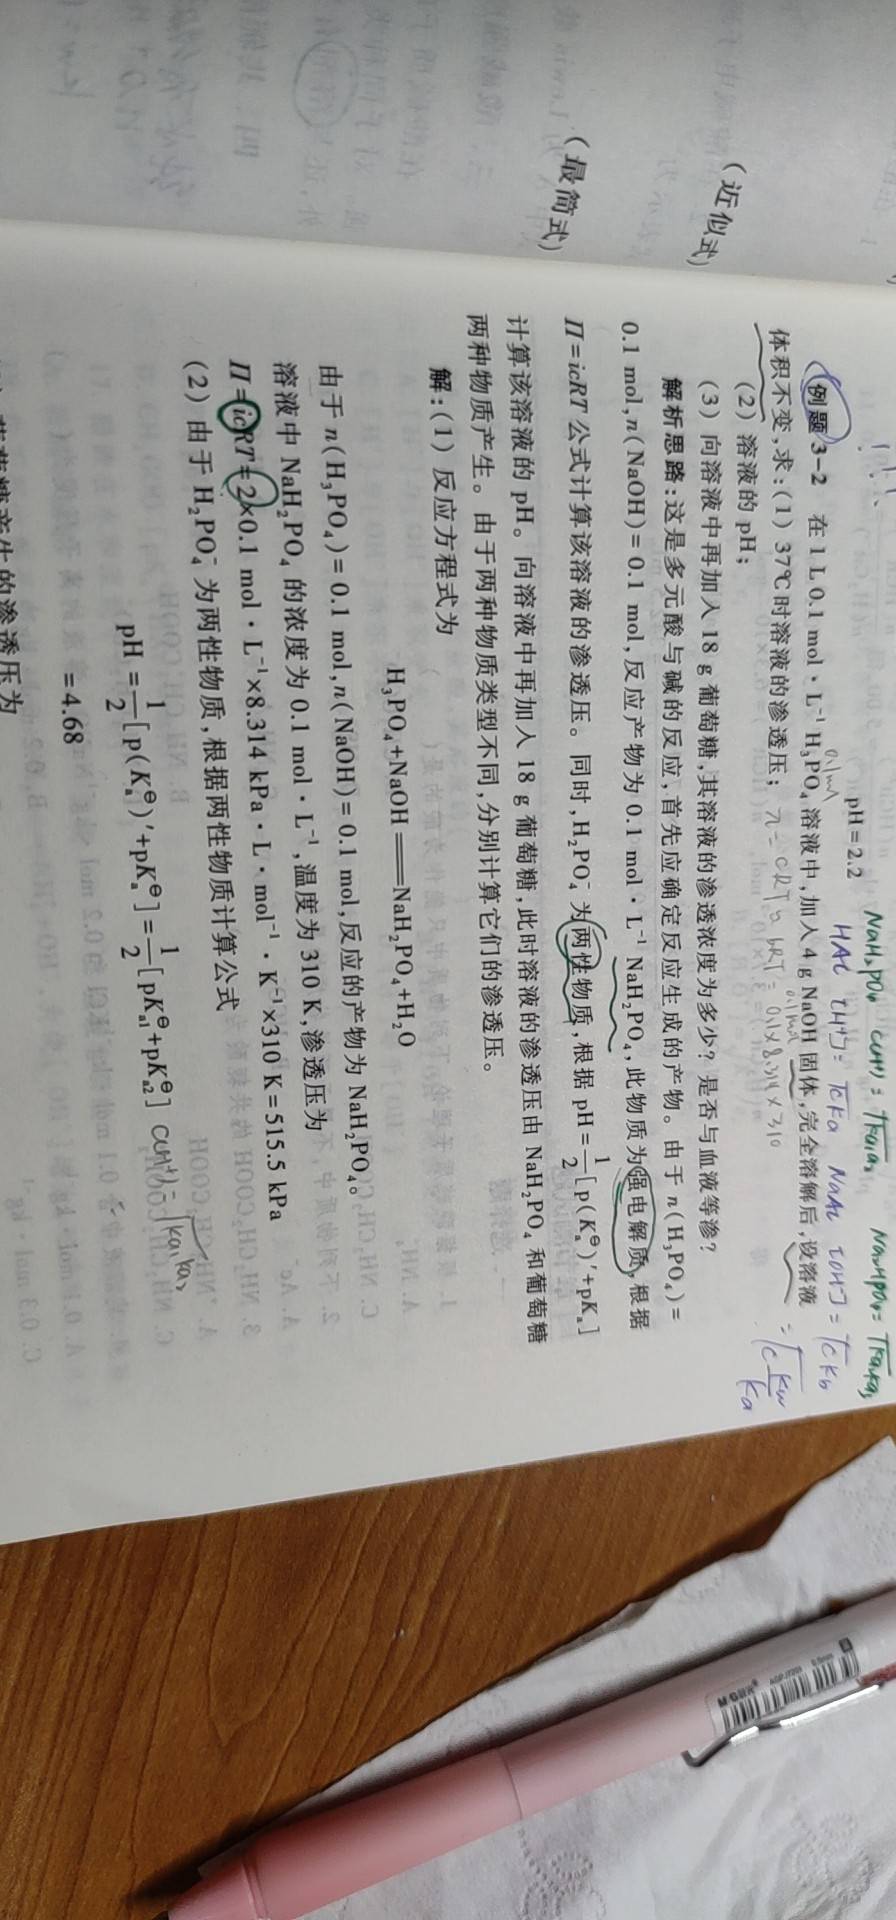 (近似式)
(最简式)
pH=2.2
NaH₂PO₄ c(H⁺)=√Ka₁Ka₂ Na₂HPO₄=√Ka₂Ka₃
HAc [H⁺]=√cKa NaAc [OH⁻]=√cKb
=√c Kw/Ka
0.1mol
0.1mol
例题 3-2 在 1 L 0.1 mol·L⁻¹ H₃PO₄ 溶液中,加入 4 g NaOH 固体,完全溶解后,设溶液
体积不变,求:(1) 37℃时溶液的渗透压; π=cRT=bRT=0.1×8.314×310
(2) 溶液的 pH;
(3) 向溶液中再加入 18 g 葡萄糖,其溶液的渗透浓度为多少? 是否与血液等渗?
解析思路:这是多元酸与碱的反应,首先应确定反应生成的产物。由于 n(H₃PO₄)=
0.1 mol,n(NaOH)=0.1 mol,反应产物为 0.1 mol·L⁻¹ NaH₂PO₄,此物质为强电解质,根据
Π=icRT 公式计算该溶液的渗透压。同时,H₂PO₄⁻为两性物质,根据 pH=1/2[p(Kₐ^⊖)′+pKₐ]
计算该溶液的 pH。向溶液中再加入 18 g 葡萄糖,此时溶液的渗透压由 NaH₂PO₄ 和葡萄糖
两种物质产生。由于两种物质类型不同,分别计算它们的渗透压。
解:(1) 反应方程式为
H₃PO₄+NaOH══NaH₂PO₄+H₂O
由于 n(H₃PO₄)=0.1 mol,n(NaOH)=0.1 mol,反应的产物为 NaH₂PO₄。
溶液中 NaH₂PO₄ 的浓度为 0.1 mol·L⁻¹,温度为 310 K,渗透压为
Π=icRT=2×0.1 mol·L⁻¹×8.314 kPa·L·mol⁻¹·K⁻¹×310 K=515.5 kPa
(2) 由于 H₂PO₄⁻为两性物质,根据两性物质计算公式
pH=1/2[p(Kₐ^⊖)′+pKₐ^⊖]=1/2[pKₐ₁^⊖+pKₐ₂^⊖] c(H⁺)=√Ka₁Ka₂
=4.68
葡萄糖产生的渗透压为
M&G
0.5mm